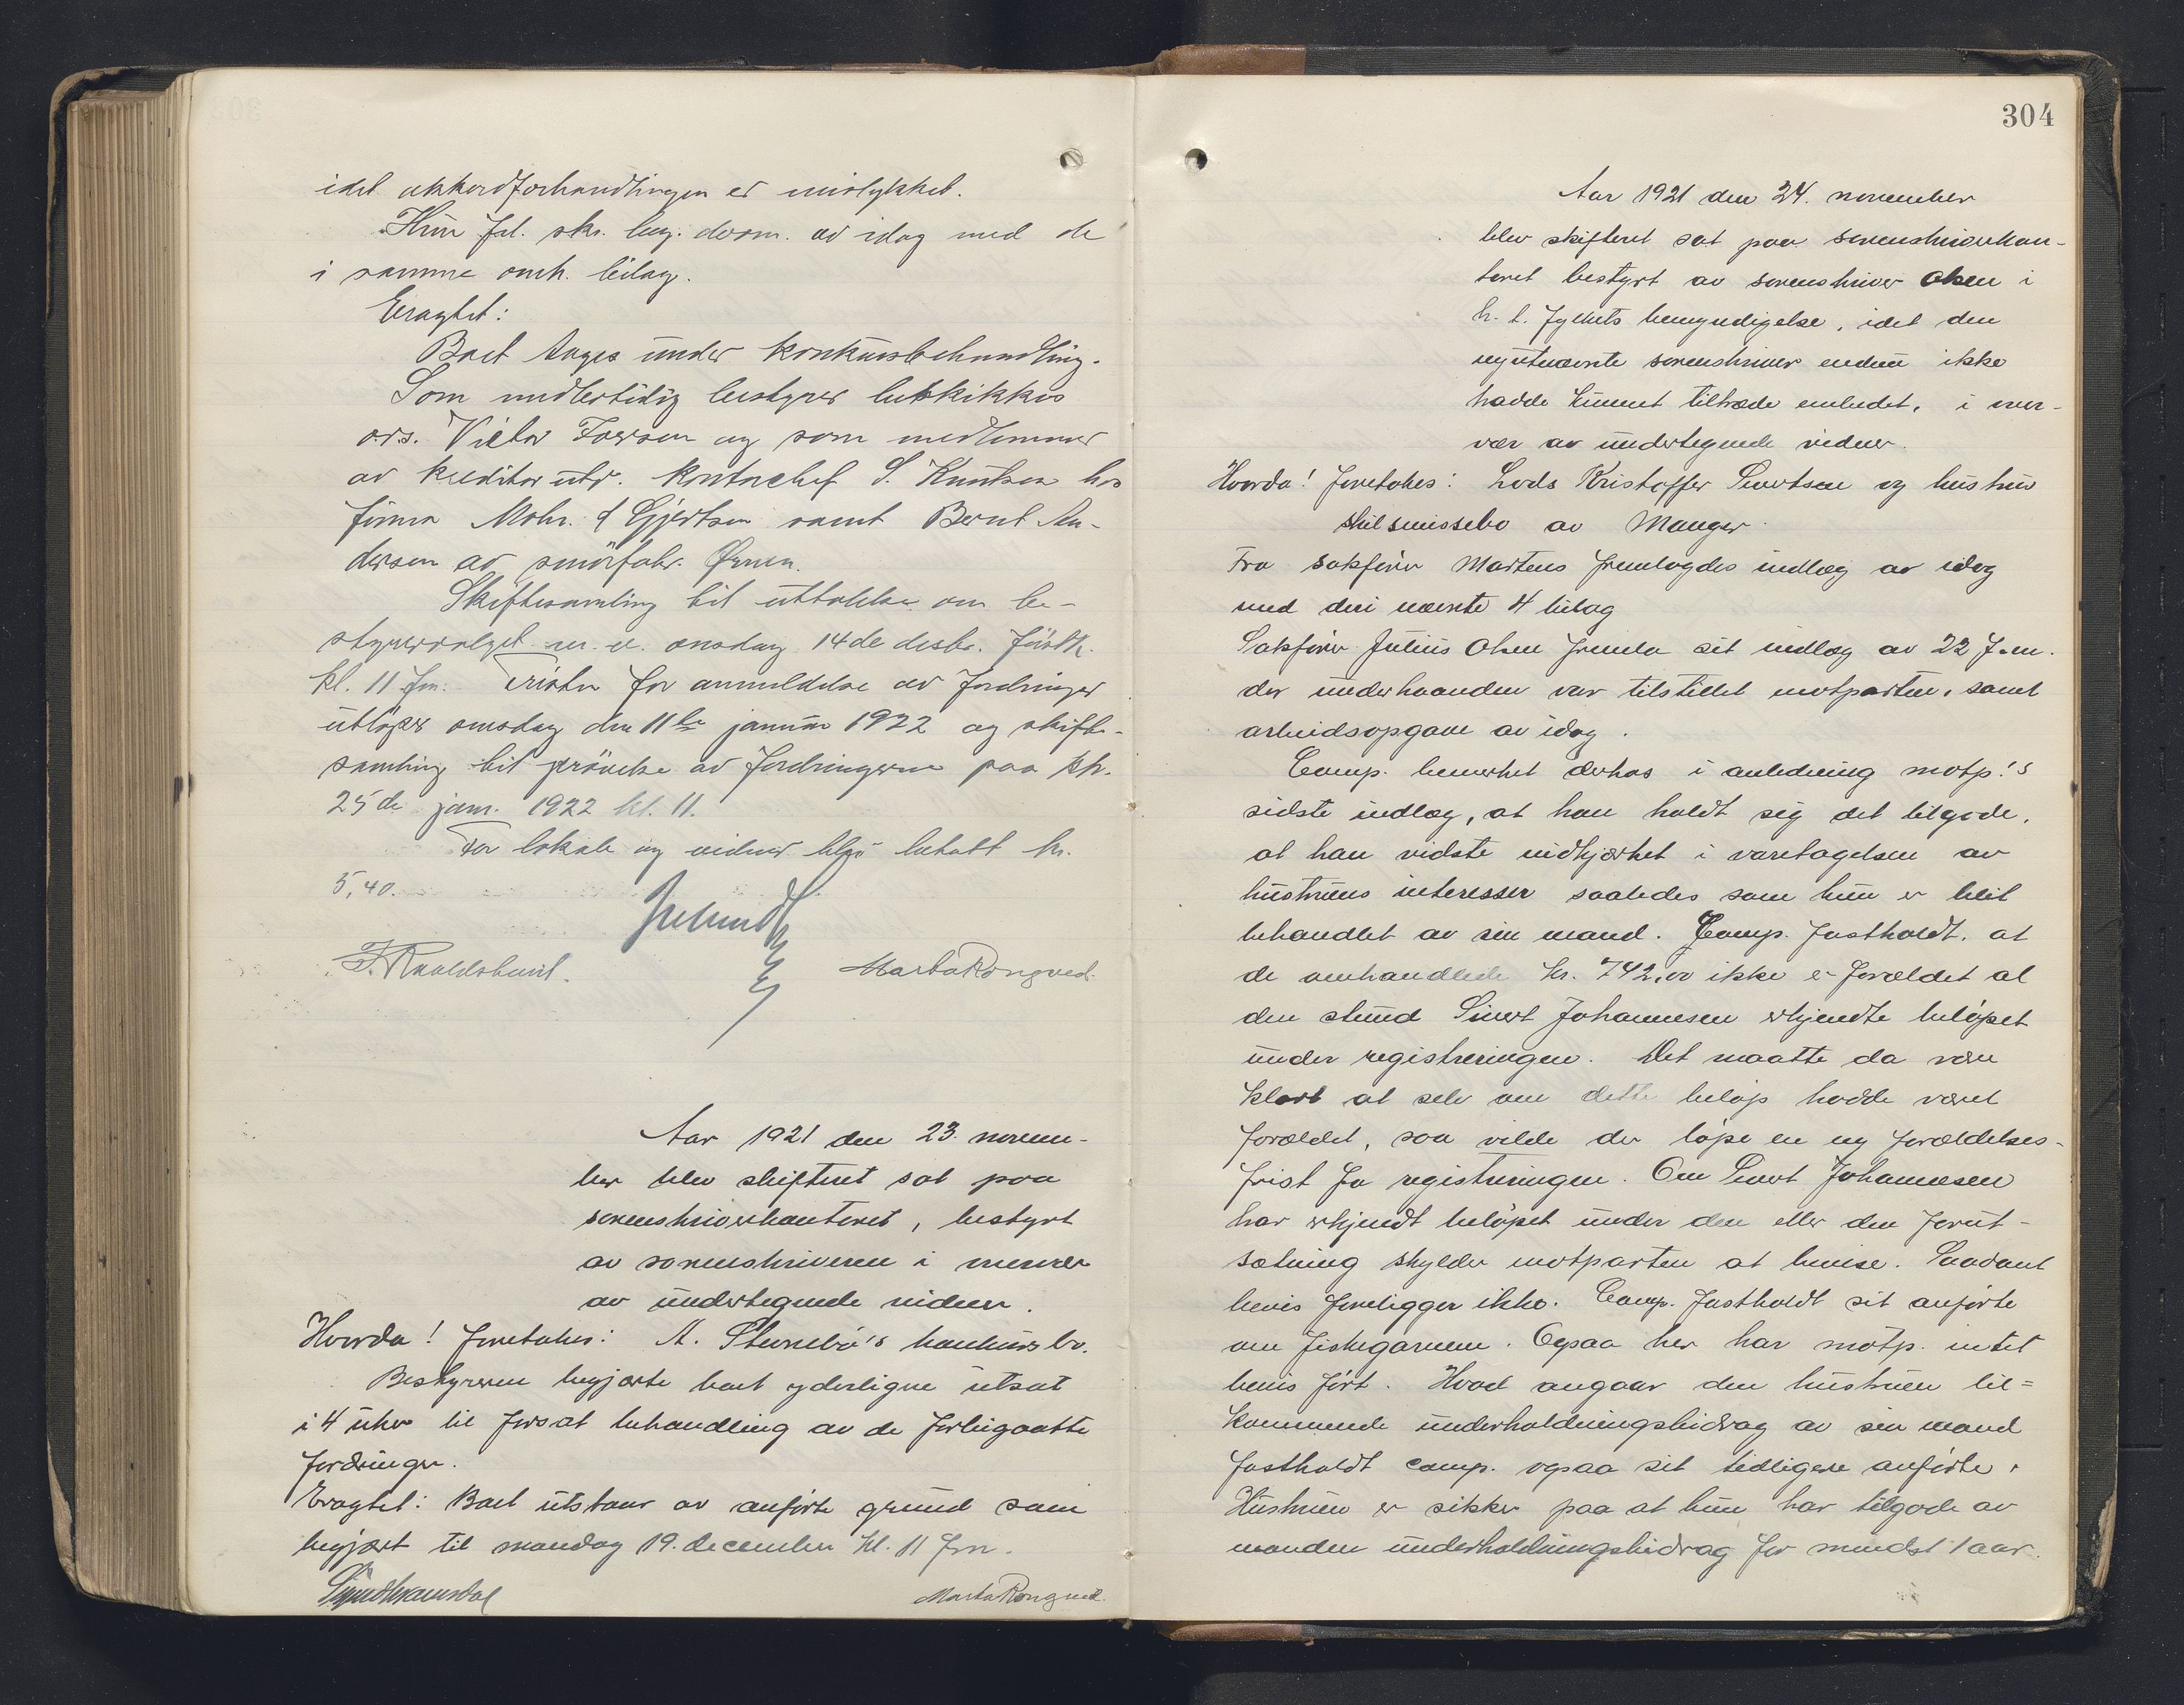 idet akkordforhandlingen er mislykket.
Hun frl. skr. beg. dersm. av idag med de
i samme omh. bilag.
Eragtet:
Boet tages under konkursbehandling.
Som midlertidig bestyrer beskikkes
o.r.s. Victor Iversen og som medlemmer
av kreditorutv. kontorchef S. Knutsen hos
firma Mohr & Gjertsen samt Bernt An-
dersen av smörfabr. Ørnen.
Skiftesamling til uttalelse om be-
styrervalget m. v. onsdag 14de desbr. förstk.
kl. 11 fm. Fristen for anmeldelse av fordringer
utlöper onsdag den 11te januar 1922 og skifte-
samling til prövelse av fordringerne paa kh.
25de jan. 1922 kl. 11.
For lokale og vidner blev betalt kr.
5,40.
Marta Rongved.
Aar 1921 den 23. novem-
ber blev skifteret sat paa
sorenskriverkontoret, bestyrt
av sorenskriveren i overvær
av undertegnede vidner.
Hvorda! foretokes: A. Sturebö's konkursbo.
Bestyreren begjærte boet yderligere utsat
i 4 uker til forsat behandling av de forliggaatte
fordringer.
Eragtet: Boet utstaar av anförte grund som
begjært til mandag 19. december kl. 11 fm.
Marta Rongved.
304
Aar 1921 den 24. november
blev skifteret sat paa sorenskriverkon-
toret bestyrt av sorenskriver Olsen i
h. t. fylkets bemyndigelse, idet den
nyutnævnte sorenskriver endnu ikke
hadde kunnet tiltræde embedet, i over-
vær av undertegnede vidner.
Hvorda! foretokes: Lods Kristoffer Sivertsen og hustrus
skilsmissebo av Manger.
Fra sakförer Martens fremlagdes indlæg av idag
med deri nævnte 4 bilag
Sakförer Julius Olsen fremla sit indlæg av 22 ds.
der underhaanden var tilstillet motparten, samt
arbeidsopgave av idag.
Comp. bemerket derhos i anledning motp.'s
sidste indlæg, at han holdt sig det tilgode,
at han vidste nidkjærhet i varetagelsen av
hustruens interesser saaledes som hun er blit
behandlet av sin mand. Comp. fastholdt, at
de omhandlede kr. 742,00 ikke er forældet al
den stund Sivert Johannesen erkjendte belöpet
under registreringen. Det maatte da være
klart at selv om dette belöp hadde været
forældet, saa vilde der löpe en ny forældelses-
frist fra registreringen. Om Sivert Johannesen
har erkjendt belöpet under den eller den forut-
sætning skylder motparten at bevise. Saadant
bevis foreligger ikke. Comp. fastholdt sit anförte
om fiskegarnene. Ogsaa her har motp. intet
bevis fört. Hvad angaar den hustruen til=
kommende underholdningsbidrag av sin mand
fastholdt comp. ogsaa sit tidligere anförte.
Hustruen er sikker paa at hun har tilgode av
manden underholdningsbidrag for mindst 1 aar.